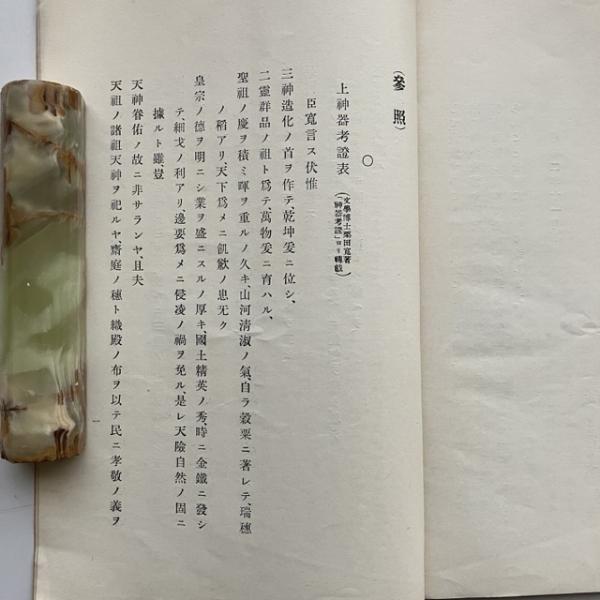 （參照）
〇
上神器考證表
（文學博士栗田寛著
「神器考證」ヨリ轉載）
臣寛言ス伏惟
三神造化ノ首ヲ作テ、乾坤爰ニ位シ、
二靈群品ノ祖ト爲テ、萬物爰ニ育ハル、
聖祖ノ慶ヲ積ミ暉ヲ重ルノ久キ、山河清淑ノ氣、自ラ穀粟ニ著レテ、瑞穗
ノ稻アリ、天下爲メニ飢歉ノ患无ク
皇宗ノ德ヲ明ニシ業ヲ盛ニスルノ厚キ、國土精英ノ秀、時ニ金鐵ニ發シ
テ、細戈ノ利アリ、邊要爲メニ侵凌ノ禍ヲ免ル、是レ天險自然ノ固ニ
據ルト雖豈
天神眷佑ノ故ニ非サランヤ、且夫
天祖ノ諸祖天神ヲ祀ルヤ、齋庭ノ穗ト織殿ノ布ヲ以テ民ニ孝敬ノ義ヲ
一